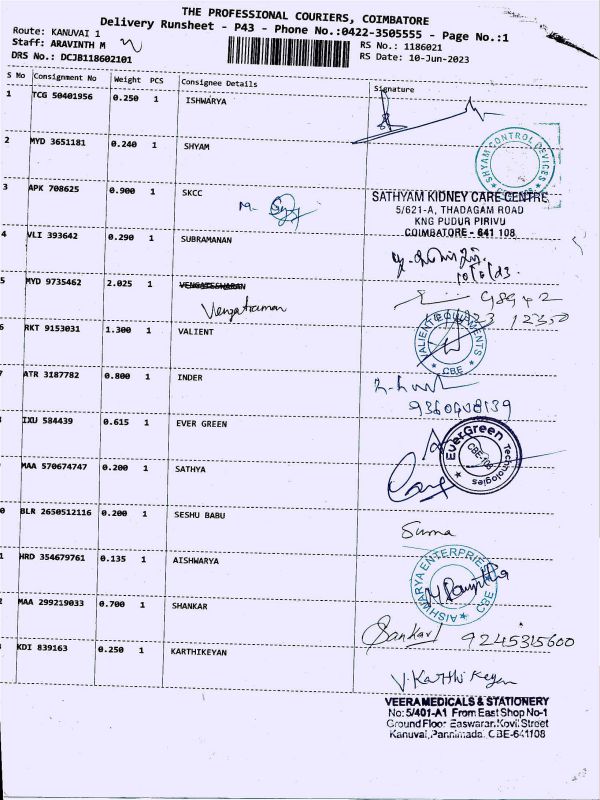 THE PROFESSIONAL COURIERS, COIMBATORE
Delivery Runsheet - P43 - Phone No.:0422-3505555 - Page No.:1
Route: KANUVAI 1
Staff: ARAVINTH M
DRS No.: DCJB118602101
RS No.: 1186021
RS Date: 10-Jun-2023
S No Consignment No Weight PCS Consignee Details Signature
1 TCG 50401956 0.250 1 ISHWARYA
2 MYD 3651181 0.240 1 SHYAM
SHYAM CONTROL DEVICES
3 APK 708625 0.900 1 SKCC
SATHYAM KIDNEY CARE CENTRE
5/621-A, THADAGAM ROAD
KNG PUDUR PIRIVU
COIMBATORE - 641 108
4 VLI 393642 0.290 1 SUBRAMANAN
5 MYD 9735462 2.025 1 VENGATESWARAN
Vengatraman
6 RKT 9153031 1.300 1 VALIENT
VALIENT EQUIPMENTS
CBE
7 ATR 3187782 0.800 1 INDER
IXU 584439 0.615 1 EVER GREEN
EverGreen Technologies
CBE-108
MAA 570674747 0.200 1 SATHYA
0 BLR 2650512116 0.200 1 SESHU BABU
Suma
1 HRD 354679761 0.135 1 AISHWARYA
AISHWARYA ENTERPRIES
CBE
2 MAA 299219033 0.700 1 SHANKAR
Sankar 9245315600
KDI 839163 0.250 1 KARTHIKEYAN
V. Karthikeyan
VEERA MEDICALS & STATIONERY
No: 5/401-A1 From East Shop No-1
Ground Floor Easwaran Kovil Street
Kanuvai, Pannimadai, CBE-641108